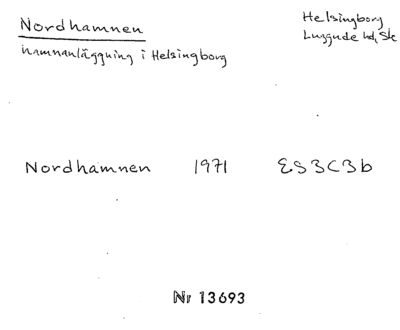 Nordhamnen
hamnanläggning i Helsingborg
Helsingborg
Luggude hd, Sk
Nordhamnen 1971 ES3C3b
Nr 13693